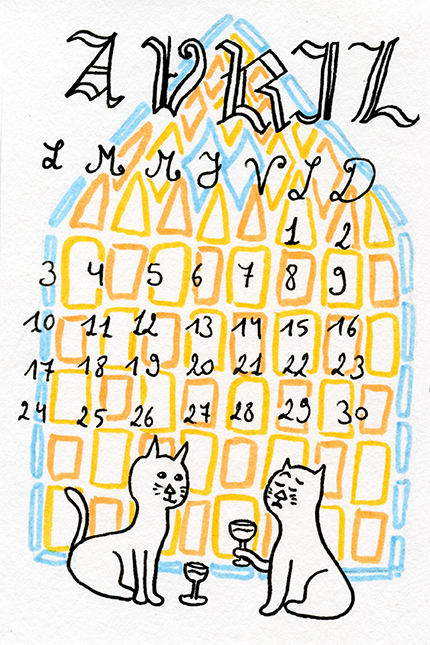 AVRIL
L M M J V L D
1 2
3 4 5 6 7 8 9
10 11 12 13 14 15 16
17 18 19 20 21 22 23
24 25 26 27 28 29 30